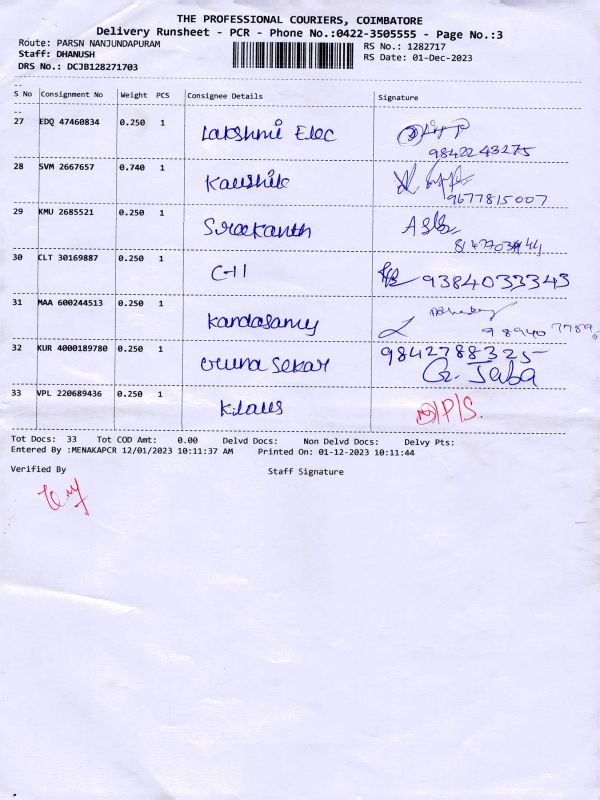 THE PROFESSIONAL COURIERS, COIMBATORE
Delivery Runsheet - PCR - Phone No.:0422-3505555 - Page No.:3
Route: PARSN NANJUNDAPURAM
RS No.: 1282717
Staff: DHANUSH
RS Date: 01-Dec-2023
DRS No.: DCJB128271703
S No Consignment No Weight PCS Consignee Details Signature
27 EDQ 47460834 0.250 1 Lakshmi Elec
9842243275
28 SVM 2667657 0.740 1 Kaushik
9677815007
29 KMU 2685521 0.250 1 Sreekanth
30 CLT 30169887 0.250 1 C-11 9384033343
31 MAA 600244513 0.250 1 Kandasamy
32 KUR 4000189780 0.250 1 Guna Sekar 9842788325
G. Jaba
33 VPL 220689436 0.250 1 Klaus
Tot Docs: 33 Tot COD Amt: 0.00 Delvd Docs: Non Delvd Docs: Delvy Pts:
Entered By :MENAKAPCR 12/01/2023 10:11:37 AM Printed On: 01-12-2023 10:11:44
Verified By Staff Signature